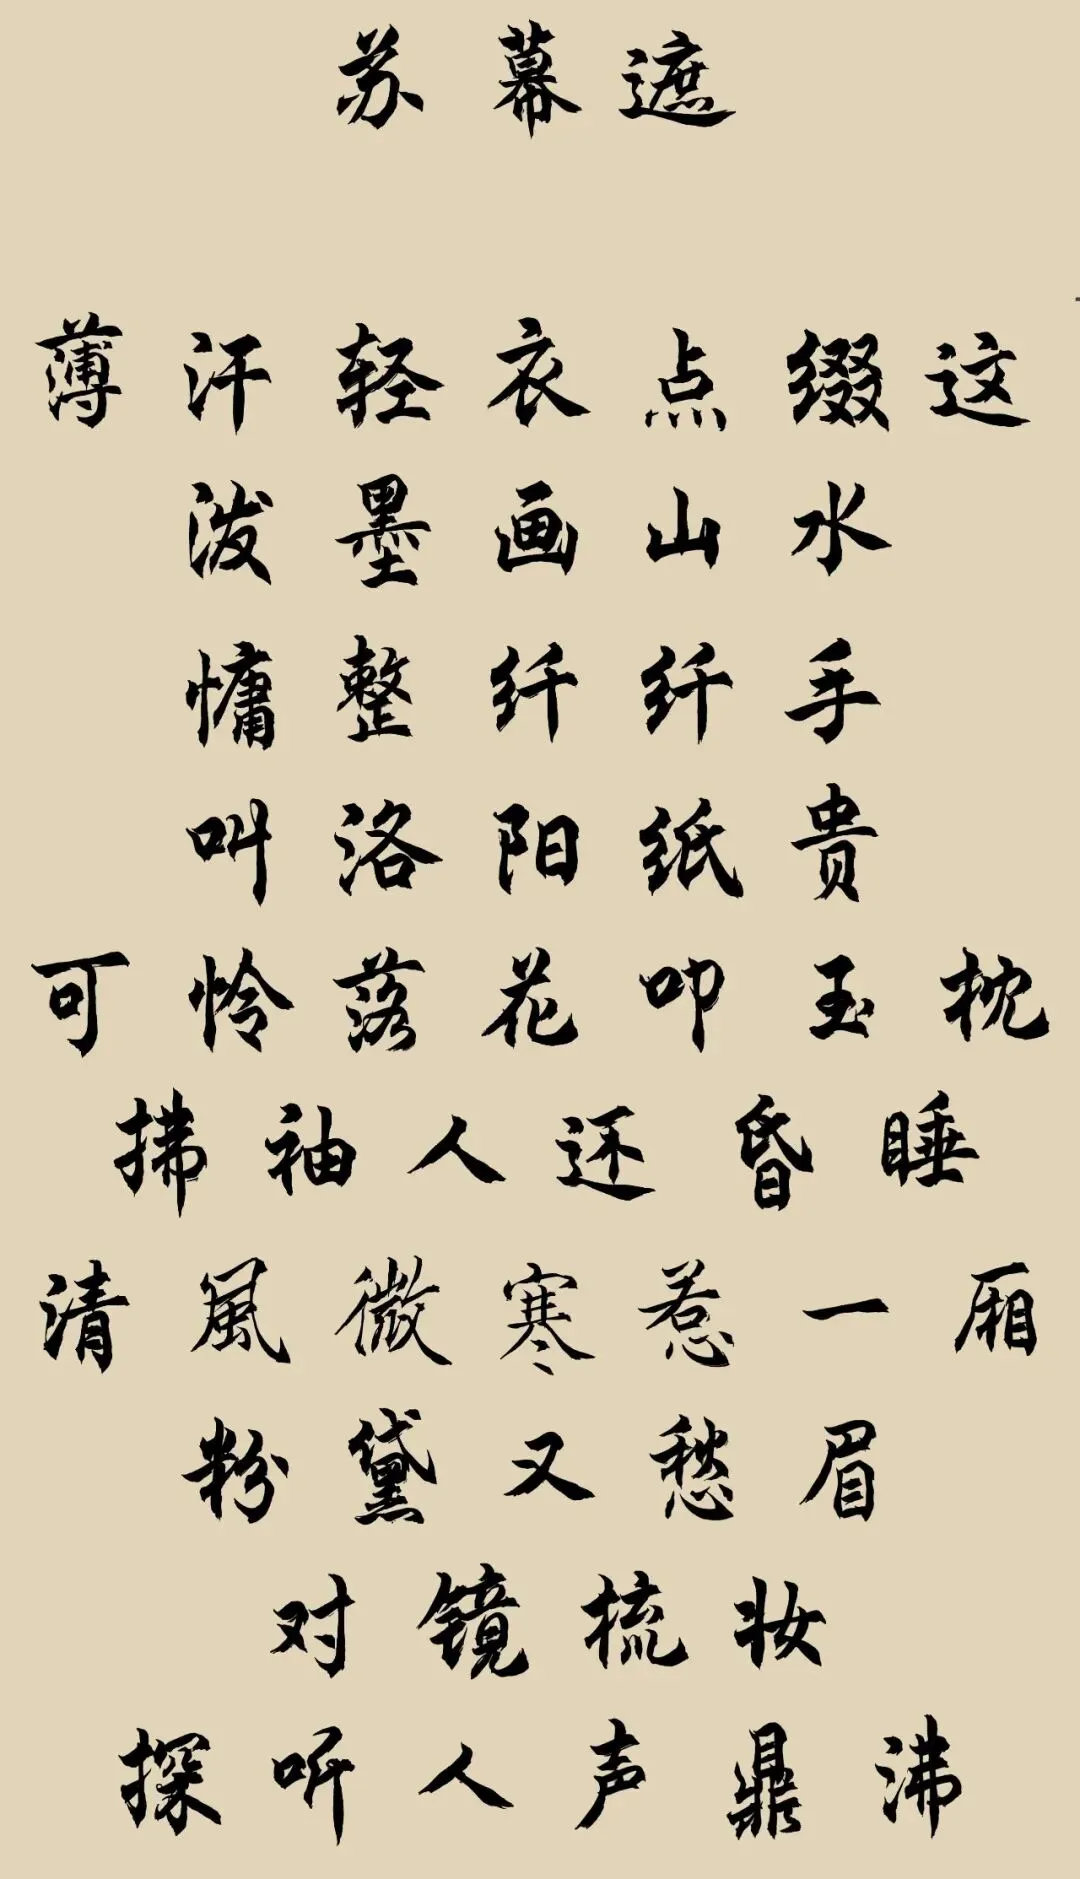 苏幕遮
薄汗轻衣点缀这
泼墨画山水
慵整纤纤手
叫洛阳纸贵
可怜落花叩玉枕
拂袖人还昏睡
清風微寒惹一厢
粉黛又愁眉
对镜梳妆
探听人声鼎沸